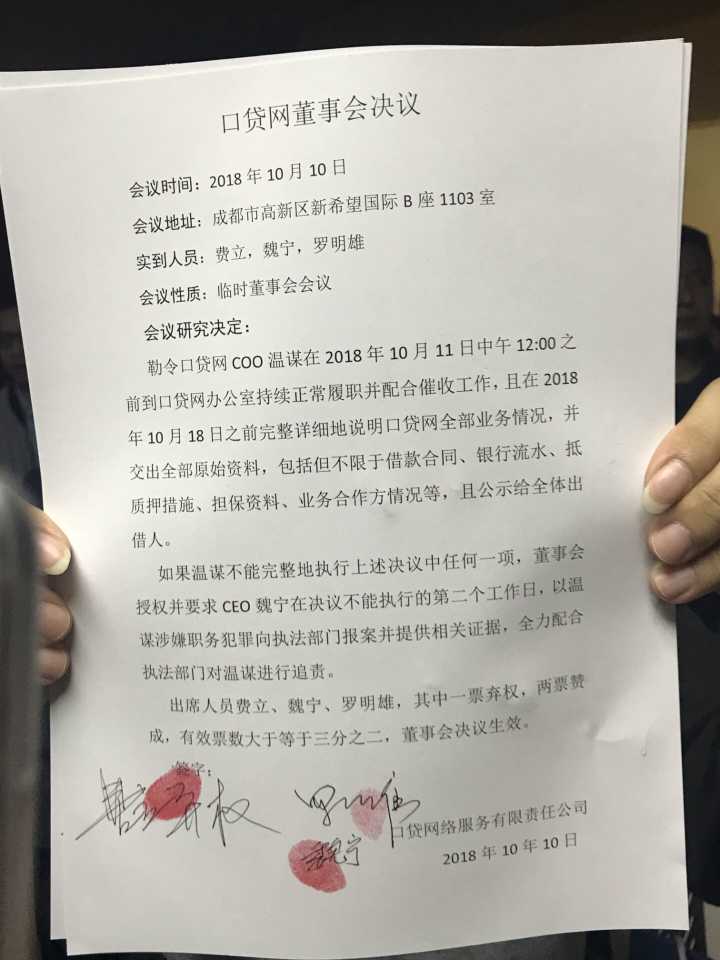 口贷网董事会决议
会议时间：2018 年 10 月 10 日
会议地址：成都市高新区新希望国际 B 座 1103 室
实到人员：费立，魏宁，罗明雄
会议性质：临时董事会会议
会议研究决定：
勒令口贷网 COO 温谋在 2018 年 10 月 11 日中午 12:00 之
前到口贷网办公室持续正常履职并配合催收工作，且在 2018
年 10 月 18 日之前完整详细地说明口贷网全部业务情况，并
交出全部原始资料，包括但不限于借款合同、银行流水、抵
质押措施、担保资料、业务合作方情况等，且公示给全体出
借人。
如果温谋不能完整地执行上述决议中任何一项，董事会
授权并要求 CEO 魏宁在决议不能执行的第二个工作日，以温
谋涉嫌职务犯罪向执法部门报案并提供相关证据，全力配合
执法部门对温谋进行追责。
出席人员费立、魏宁、罗明雄，其中一票弃权，两票赞
成，有效票数大于等于三分之二，董事会决议生效。
签字：
费立 弃权
魏宁
口贷网络服务有限责任公司
2018 年 10 年 10 日